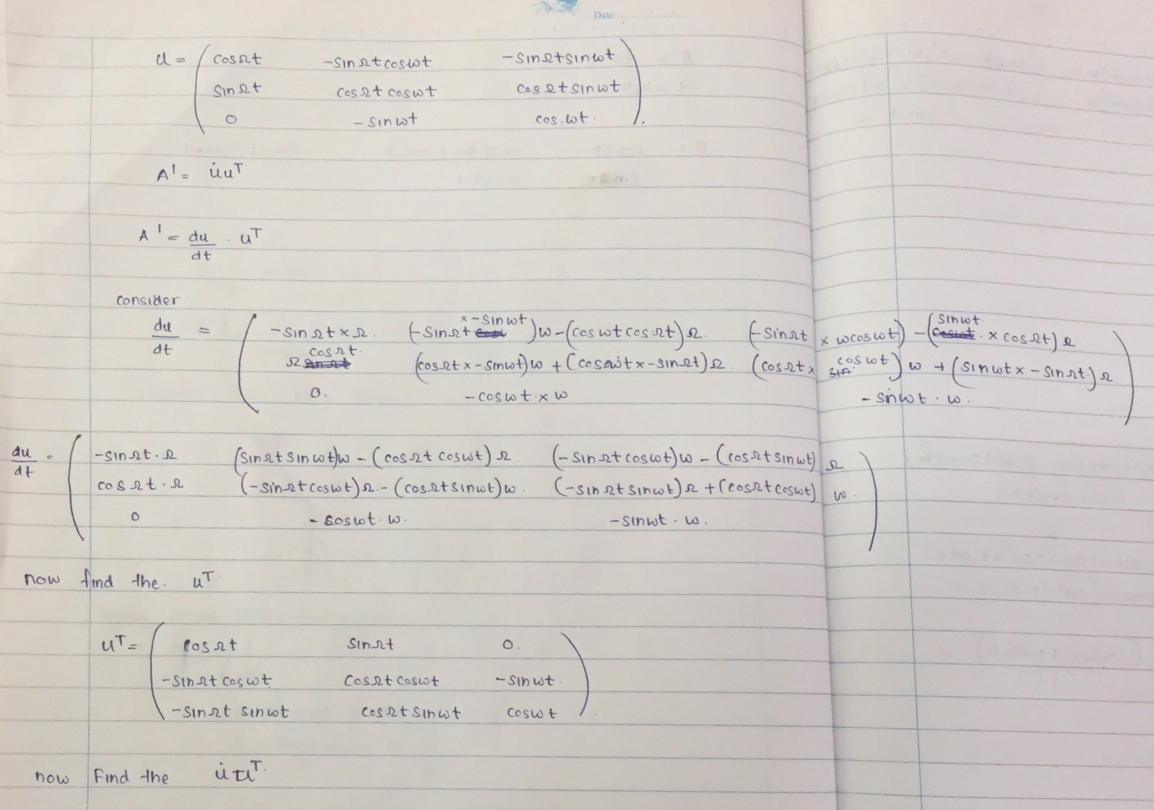 Date
u = ( cosΩt -sinΩt cosωt -sinΩt sinωt
sinΩt cosΩt cosωt cosΩt sinωt
0 -sinωt cos.ωt. ).
A' = u̇uᵀ
A' = du/dt . uᵀ
consider
du/dt = ( -sinΩt × Ω. (-sinΩt × -sinωt)ω - (cosωt cosΩt)Ω. (-sinΩt × ωcosωt) - (sinωt. × cosΩt)Ω
Ω cosΩt. (cosΩt × -sinωt)ω + (cosωt × -sinΩt)Ω (cosΩt × cosωt)ω + (sinωt × -sinΩt.)Ω
0. -cosωt × ω -sinωt . ω. )
du/dt = ( -sinΩt . Ω (sinΩt sinωt)ω - (cosΩt cosωt)Ω. (-sinΩt cosωt)ω - (cosΩt sinωt)Ω
cosΩt . Ω (-sinΩt cosωt)Ω - (cosΩt sinωt)ω. (-sinΩt sinωt)Ω + (cosΩt cosωt) ω.
0 -cosωt . ω. -sinωt . ω. )
now find the. uᵀ
uᵀ = ( cosΩt sinΩt 0.
-sinΩt cosωt cosΩt cosωt -sinωt.
-sinΩt sinωt cosΩt sinωt cosωt ).
now Find the u̇uᵀ.